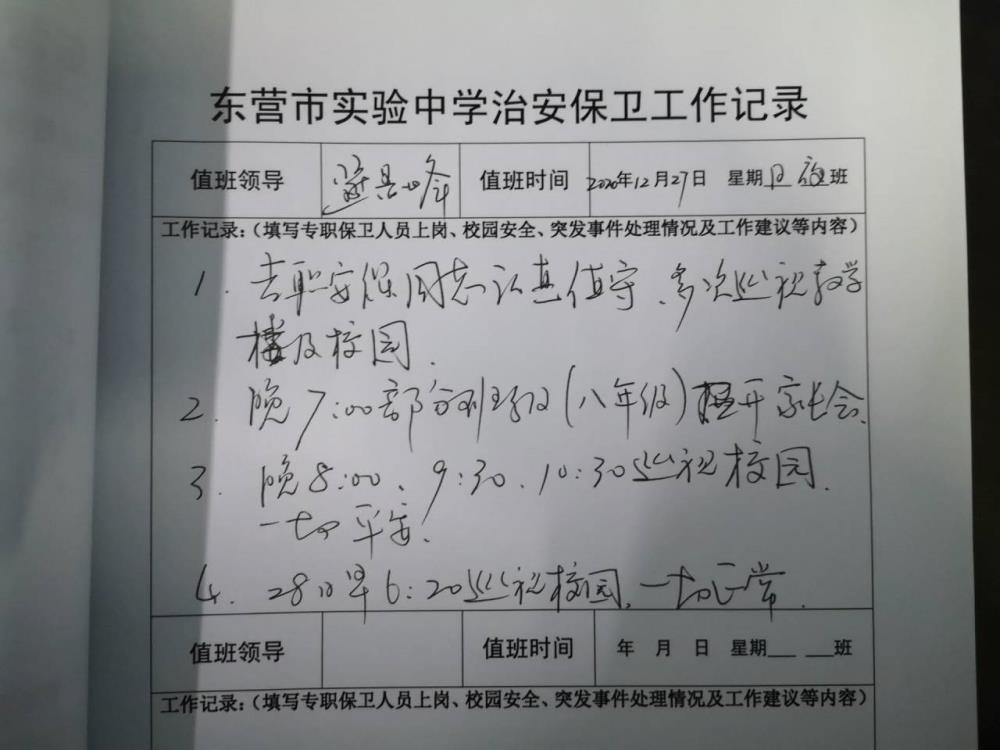 东营市实验中学治安保卫工作记录
值班领导 值班时间 2020年12月27日 星期日 夜班
工作记录:(填写专职保卫人员上岗、校园安全、突发事件处理情况及工作建议等内容)
1. 专职安保同志认真值守、多次巡视教学
楼及校园.
2. 晚7:00部分班级(八年级)召开家长会.
3. 晚8:00、9:30、10:30巡视校园.
一切平安.
4. 28日早6:20巡视校园,一切正常.
值班领导 值班时间 年 月 日 星期___ ___班
工作记录:(填写专职保卫人员上岗、校园安全、突发事件处理情况及工作建议等内容)